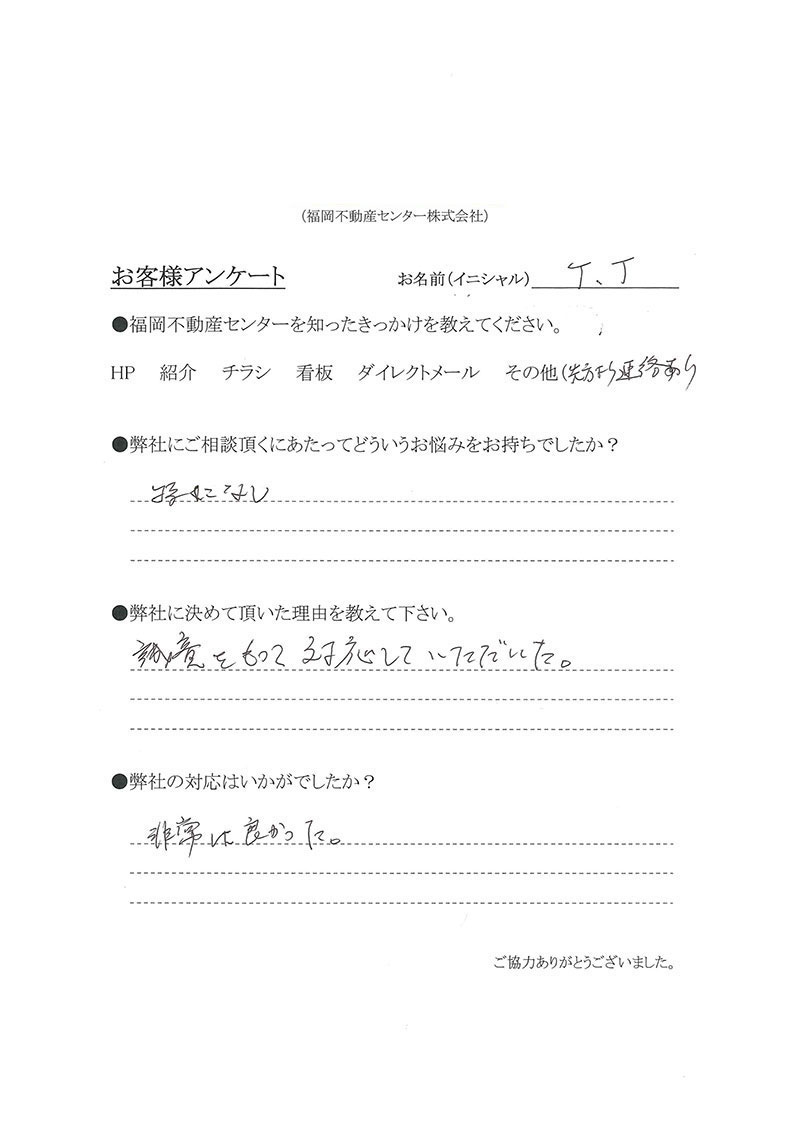 （福岡不動産センター株式会社）
お客様アンケート お名前（イニシャル） T、T
●福岡不動産センターを知ったきっかけを教えてください。
HP 紹介 チラシ 看板 ダイレクトメール その他（先方より連絡あり
●弊社にご相談頂くにあたってどういうお悩みをお持ちでしたか？
特になし
●弊社に決めて頂いた理由を教えて下さい。
誠意をもって対応していただいた。
●弊社の対応はいかがでしたか？
非常に良かった。
ご協力ありがとうございました。